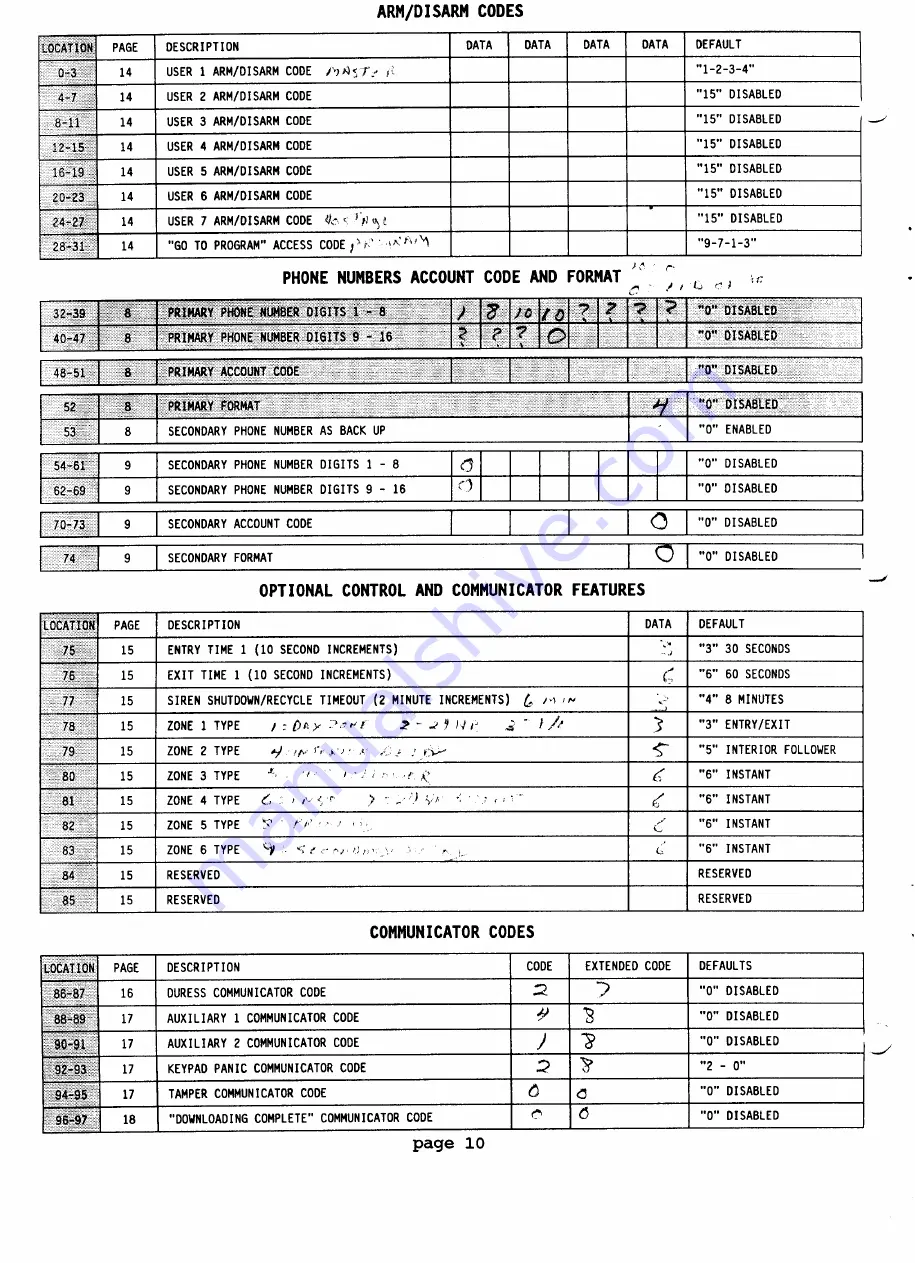 ARM/DISARM CODES
LOCATION PAGE DESCRIPTION DATA DATA DATA DATA DEFAULT
0-3 14 USER 1 ARM/DISARM CODE MASTER "1-2-3-4"
4-7 14 USER 2 ARM/DISARM CODE "15" DISABLED
8-11 14 USER 3 ARM/DISARM CODE "15" DISABLED
12-15 14 USER 4 ARM/DISARM CODE "15" DISABLED
16-19 14 USER 5 ARM/DISARM CODE "15" DISABLED
20-23 14 USER 6 ARM/DISARM CODE "15" DISABLED
24-27 14 USER 7 ARM/DISARM CODE "15" DISABLED
28-31 14 "GO TO PROGRAM" ACCESS CODE PROGRAM "9-7-1-3"
PHONE NUMBERS ACCOUNT CODE AND FORMAT
32-39 8 PRIMARY PHONE NUMBER DIGITS 1 - 8 1 8 10 10 ? ? ? ? "0" DISABLED
40-47 8 PRIMARY PHONE NUMBER DIGITS 9 - 16 ? ? ? 0 "0" DISABLED
48-51 8 PRIMARY ACCOUNT CODE "0" DISABLED
52 8 PRIMARY FORMAT 4 "0" DISABLED
53 8 SECONDARY PHONE NUMBER AS BACK UP "0" ENABLED
54-61 9 SECONDARY PHONE NUMBER DIGITS 1 - 8 0 "0" DISABLED
62-69 9 SECONDARY PHONE NUMBER DIGITS 9 - 16 0 "0" DISABLED
70-73 9 SECONDARY ACCOUNT CODE 0 "0" DISABLED
74 9 SECONDARY FORMAT 0 "0" DISABLED
OPTIONAL CONTROL AND COMMUNICATOR FEATURES
LOCATION PAGE DESCRIPTION DATA DEFAULT
75 15 ENTRY TIME 1 (10 SECOND INCREMENTS) "3" 30 SECONDS
76 15 EXIT TIME 1 (10 SECOND INCREMENTS) 6 "6" 60 SECONDS
77 15 SIREN SHUTDOWN/RECYCLE TIMEOUT (2 MINUTE INCREMENTS) 6 MIN "4" 8 MINUTES
78 15 ZONE 1 TYPE 1 = DAY ZONE 2 - 24 HR 3 "3" ENTRY/EXIT
79 15 ZONE 2 TYPE 5 "5" INTERIOR FOLLOWER
80 15 ZONE 3 TYPE 6 "6" INSTANT
81 15 ZONE 4 TYPE 6 "6" INSTANT
82 15 ZONE 5 TYPE 6 "6" INSTANT
83 15 ZONE 6 TYPE 6 "6" INSTANT
84 15 RESERVED RESERVED
85 15 RESERVED RESERVED
COMMUNICATOR CODES
LOCATION PAGE DESCRIPTION CODE EXTENDED CODE DEFAULTS
86-87 16 DURESS COMMUNICATOR CODE 2 7 "0" DISABLED
88-89 17 AUXILIARY 1 COMMUNICATOR CODE 4 8 "0" DISABLED
90-91 17 AUXILIARY 2 COMMUNICATOR CODE 1 8 "0" DISABLED
92-93 17 KEYPAD PANIC COMMUNICATOR CODE 2 8 "2 - 0"
94-95 17 TAMPER COMMUNICATOR CODE 0 0 "0" DISABLED
96-97 18 "DOWNLOADING COMPLETE" COMMUNICATOR CODE 0 0 "0" DISABLED
page 10
manualshive.com